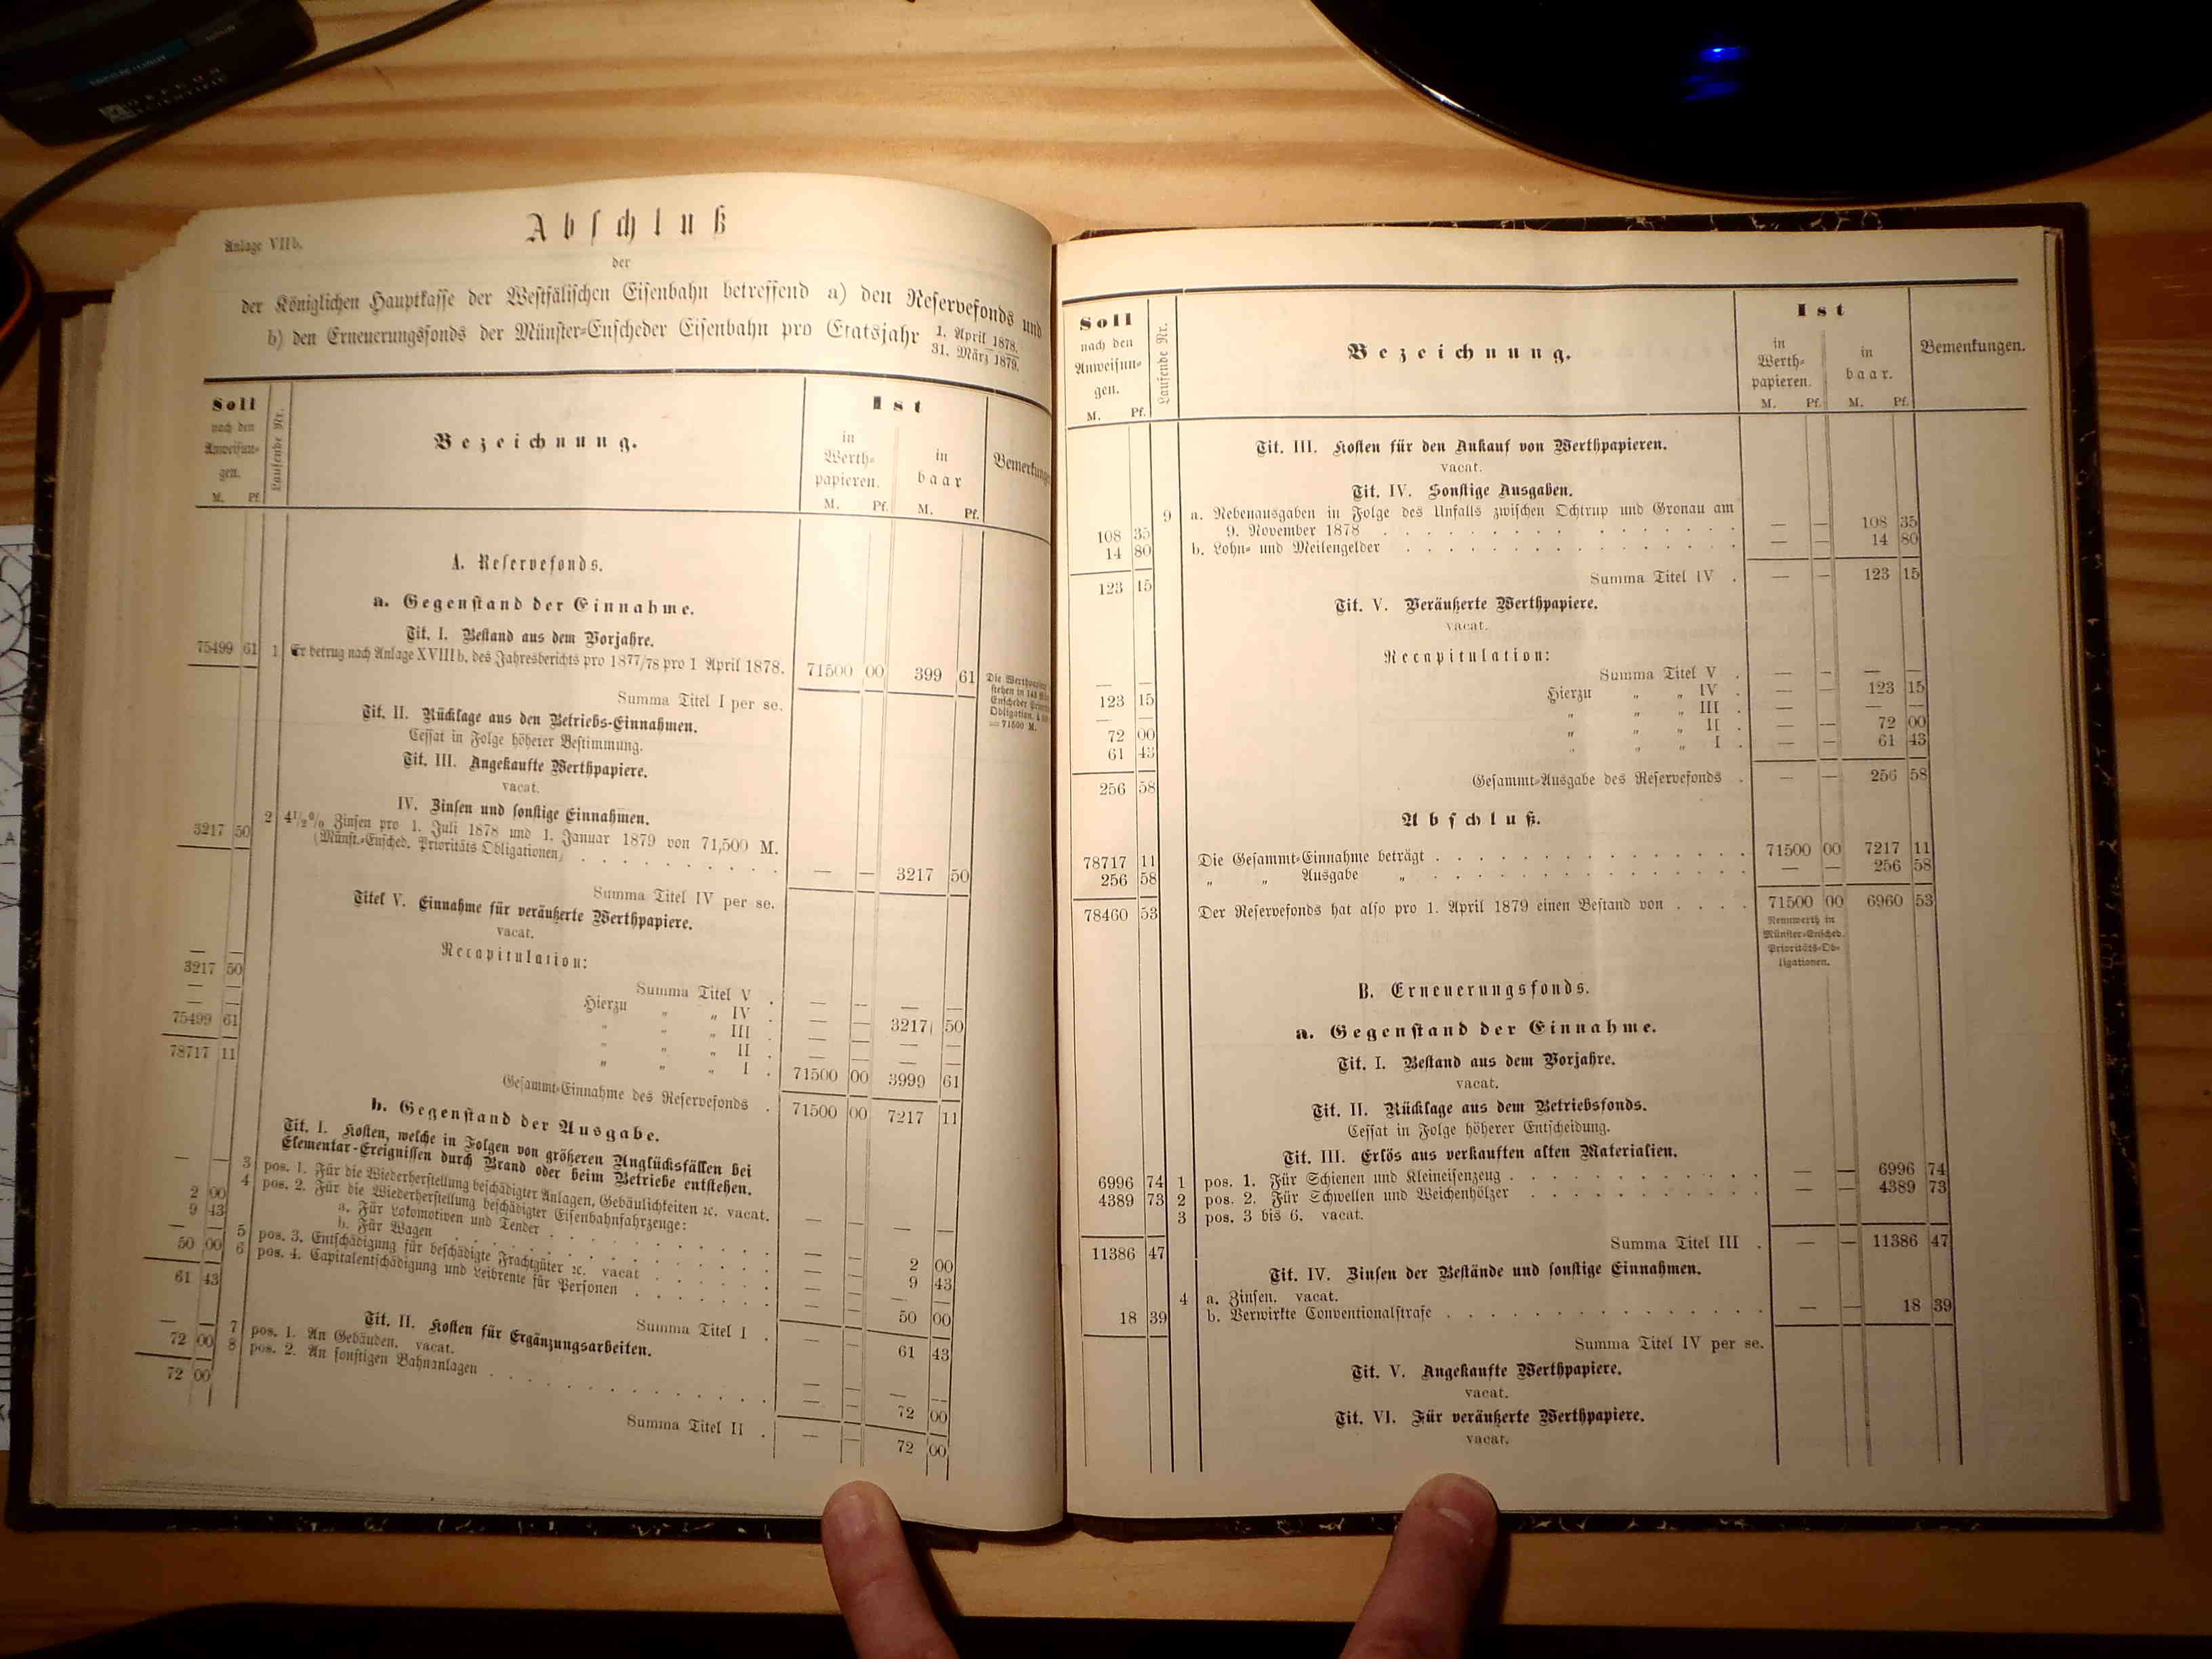 Anlage VII b.
Abschluß
der
der Königlichen Hauptkasse der Westfälischen Eisenbahn betreffend a) den Reservefonds und
b) den Erneuerungsfonds der Münster-Enscheder Eisenbahn pro Etatsjahr 1. April 1878.
31. März 1879.
Soll
nach den
Anweisun-
gen.
M. Pf.
Laufende Nr.
Bezeichnung.
Ist
in
Werth-
papieren.
M. Pf.
in
baar
M. Pf.
A. Reservefonds.
a. Gegenstand der Einnahme.
Tit. I. Bestand aus dem Vorjahre.
75499 61 1 Er betrug nach Anlage XVIII b. des Jahresberichts pro 1877/78 pro 1 April 1878. 71500 00 399 61
Die
stehen in
Enscheder
Obligation. à
= 71500 M.
Summa Titel I per se.
Tit. II. Rücklage aus den Betriebs-Einnahmen.
Cessat in Folge höherer Bestimmung.
Tit. III. Angekaufte Werthpapiere.
vacat.
IV. Zinsen und sonstige Einnahmen.
2 4 1/2 % Zinsen pro 1. Juli 1878 und 1. Januar 1879 von 71,500 M.
3217 50 (Münst.-Ensched. Prioritäts Obligationen) . . . . . . . . — — 3217 50
Summa Titel IV per se.
Titel V. Einnahme für veräußerte Werthpapiere.
vacat.
Recapitulation:
— Summa Titel V . — — — —
3217 50 Hierzu " " IV . — — 3217 50
— " " " III . — — — —
— " " " II . — — — —
75499 61 " " " I . 71500 00 3999 61
78717 11 Gesammt-Einnahme des Reservefonds . 71500 00 7217 11
b. Gegenstand der Ausgabe.
Tit. I. Kosten, welche in Folgen von größeren Unglücksfällen bei
Elementar-Ereignissen durch Brand oder beim Betriebe entstehen.
— — 3 pos. 1. Für die Wiederherstellung beschädigter Anlagen, Gebäulichkeiten ꝛc. vacat. — — — —
4 pos. 2. Für die Wiederherstellung beschädigter Eisenbahnfahrzeuge:
2 00 a. Für Lokomotiven und Tender . . . . . . . — — 2 00
9 43 b. Für Wagen . . . . . . . — — 9 43
— — 5 pos. 3. Entschädigung für beschädigte Frachtgüter ꝛc. vacat . . . . — — — —
50 00 6 pos. 4. Capitalentschädigung und Leibrente für Personen . . . . . — — 50 00
61 43 Summa Titel I . — — 61 43
Tit. II. Kosten für Ergänzungsarbeiten.
— — 7 pos. 1. An Gebäuden. vacat. — — — —
72 00 8 pos. 2. An sonstigen Bahnanlagen . . . . . . . . . . — — 72 00
72 00 Summa Titel II . — — 72 00
Soll
nach den
Anweisun-
gen.
M. Pf.
Laufende Nr.
Bezeichnung.
Ist
in
Werth-
papieren.
M. Pf.
in
baar.
M. Pf.
Bemerkungen.
Tit. III. Kosten für den Ankauf von Werthpapieren.
vacat.
Tit. IV. Sonstige Ausgaben.
9 a. Nebenausgaben in Folge des Unfalls zwischen Ochtrup und Gronau am
108 35 9. November 1878 . . . . . . . . . . . . — — 108 35
14 80 b. Lohn- und Meilengelder . . . . . . . . . . . . — — 14 80
123 15 Summa Titel IV . — — 123 15
Tit. V. Veräußerte Werthpapiere.
vacat.
Recapitulation:
— — Summa Titel V . — — — —
123 15 Hierzu " " IV . — — 123 15
— — " " " III . — — —
72 00 " " " II . — — 72 00
61 43 " " " I . — — 61 43
256 58 Gesammt-Ausgabe des Reservefonds . — — 256 58
Abschluß.
78717 11 Die Gesammt-Einnahme beträgt . . . . . . . . . . . . 71500 00 7217 11
256 58 " " Ausgabe " . . . . . . . . . . . . — — 256 58
78460 53 Der Reservefonds hat also pro 1. April 1879 einen Bestand von . . . . 71500 00 6960 53
Nennwerth in
Münster-Ensched.
Prioritäts-Ob-
ligationen.
B. Erneuerungsfonds.
a. Gegenstand der Einnahme.
Tit. I. Bestand aus dem Vorjahre.
vacat.
Tit. II. Rücklage aus dem Betriebsfonds.
Cessat in Folge höherer Entscheidung.
Tit. III. Erlös aus verkauften alten Materialien.
6996 74 1 pos. 1. Für Schienen und Kleineisenzeug . . . . . . . . . . — — 6996 74
4389 73 2 pos. 2. Für Schwellen und Weichenhölzer . . . . . . . . . . — — 4389 73
3 pos. 3 bis 6. vacat.
11386 47 Summa Titel III . — — 11386 47
Tit. IV. Zinsen der Bestände und sonstige Einnahmen.
4 a. Zinsen. vacat.
18 39 b. Verwirkte Conventionalstrafe . . . . . . . . . . . . — — 18 39
Summa Titel IV per se.
Tit. V. Angekaufte Werthpapiere.
vacat.
Tit. VI. Für veräußerte Werthpapiere.
vacat.